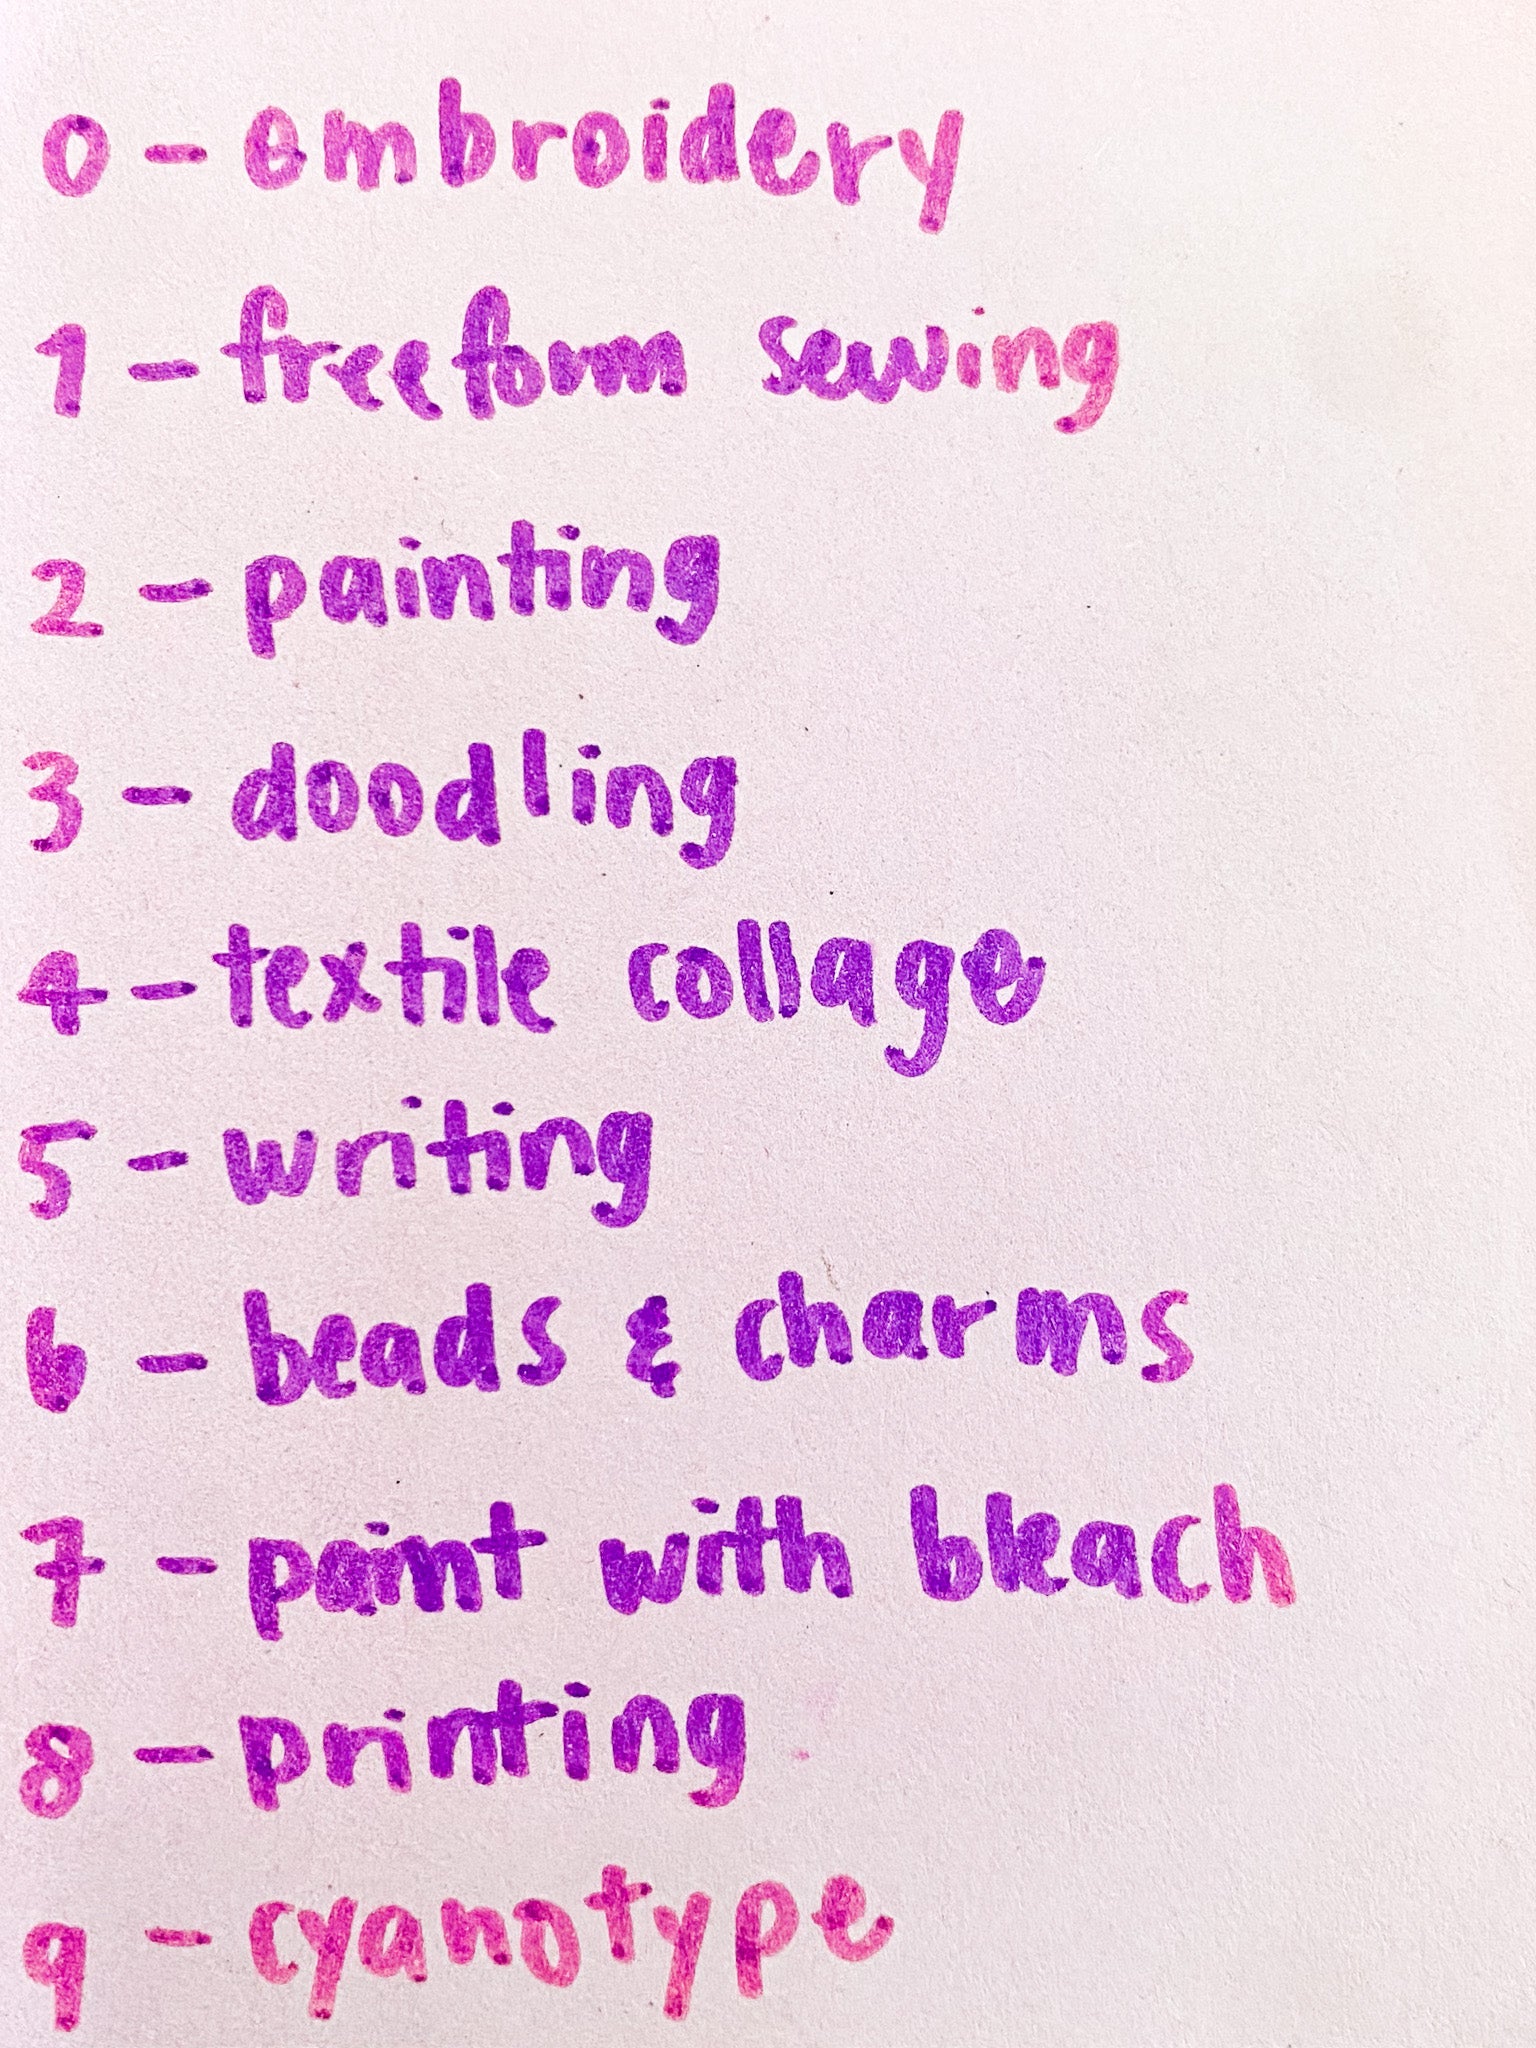 0 - embroidery
1 - freeform sewing
2 - painting
3 - doodling
4 - textile collage
5 - writing
6 - beads & charms
7 - paint with bleach
8 - printing
9 - cyanotype